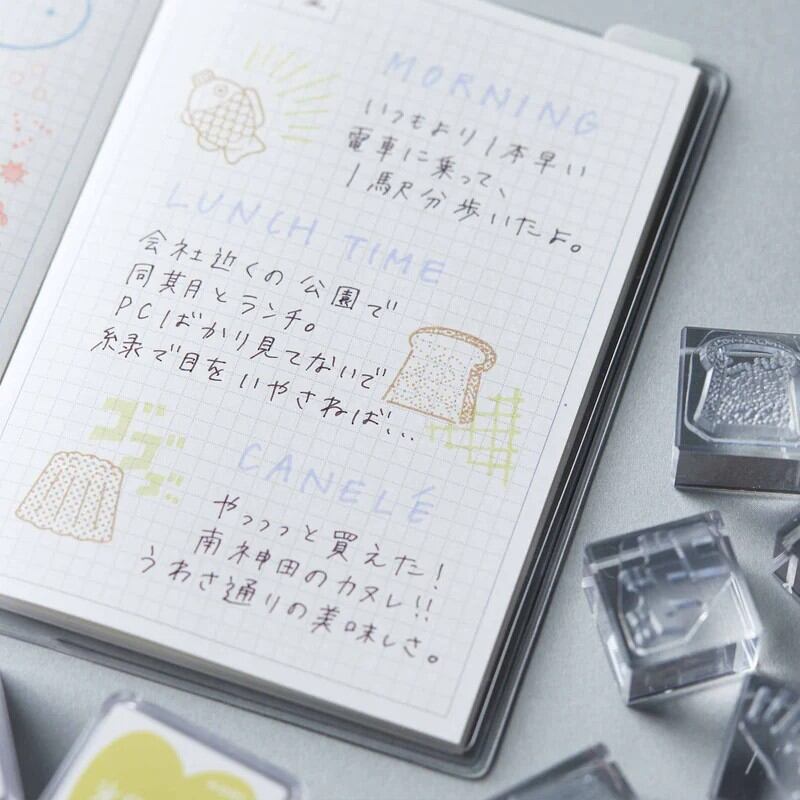 MORNING
いつもより1本早い
電車に乗って、
1駅分歩いたよ。
LUNCH TIME
会社近くの公園で
同期とランチ。
PCばかり見てないで
緑で目をいやさねば…
ゴゴゴ
CANELÉ
やっっっと買えた!
南神田のカヌレ!!
うわさ通りの美味しさ。